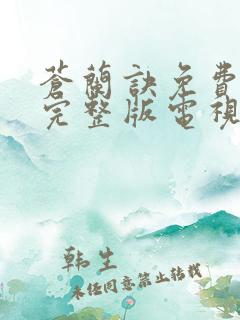 蒼蘭訣免費
完整版電視
韩生
未经同意禁止转载